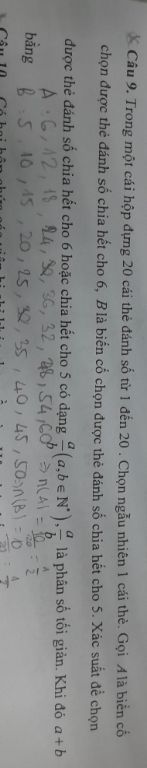 Câu 9. Trong một cái hộp đựng 20 cái thẻ đánh số từ 1 đến 20 . Chọn ngẫu nhiên 1 cái thẻ. Gọi A là biến cố
chọn được thẻ đánh số chia hết cho 6, B là biến cố chọn được thẻ đánh số chia hết cho 5. Xác suất để chọn
được thẻ đánh số chia hết cho 6 hoặc chia hết cho 5 có dạng a/b (a.b ∈ N*), a/b là phân số tối giản. Khi đó a + b
A : 6, 12, 18, 24, 36, 32, 54, 60 ⇒ n(A) =
bằng
B : 5, 10, 15, 20, 25, 35, 40, 45, 50 n(B) =
Câu 10. Có hai hộp